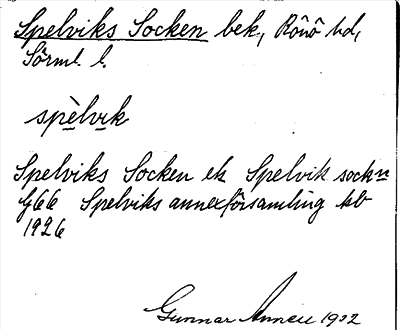 Spelviks Socken bek., Rönö hd,
Sörml. l.
spèlvik
Spelviks Socken ek Spelvik sockn
G66 Spelviks annexförsamling kb
1926
Gunnar 1932